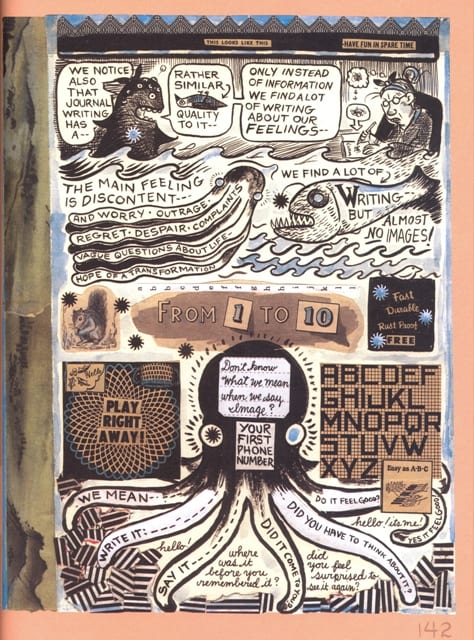 THIS LOOKS LIKE THIS
HAVE FUN IN SPARE TIME
WE NOTICE
ALSO
THAT
JOURNAL
WRITING
HAS
A--
RATHER
SIMILAR
QUALITY
TO IT--
ONLY INSTEAD
OF INFORMATION
WE FIND A LOT
OF WRITING
ABOUT OUR
FEELINGS--
THE MAIN FEELING
IS DISCONTENT--
AND WORRY · OUTRAGE ·
REGRET · DESPAIR · COMPLAINTS
VAGUE QUESTIONS ABOUT LIFE
HOPE OF A TRANSFORMATION
WE FIND A LOT OF
WRITING
BUT ALMOST
NO IMAGES!
a b c d e f g h i j k l m n o p q r s t u v w x y z
FROM 1 TO 10
Fast
Durable
Rust Proof
FREE
Hello
PLAY
RIGHT
AWAY!
Don't know
what we mean
when we say
image?
YOUR
FIRST
PHONE
NUMBER
ABCDEF
GHIJKL
MNOPQR
STUVW
XYZ
Easy as A-B-C
WE MEAN--
WRITE IT:--
hello!
SAY IT--
where
was it
before you
remembered it?
DID IT COME TO YOU?
did
you feel
surprised to
see it again?
DID YOU HAVE TO THINK ABOUT IT?
DO IT FEEL GOOD?
hello! its me!
YES IT FEEL GOOD!
142